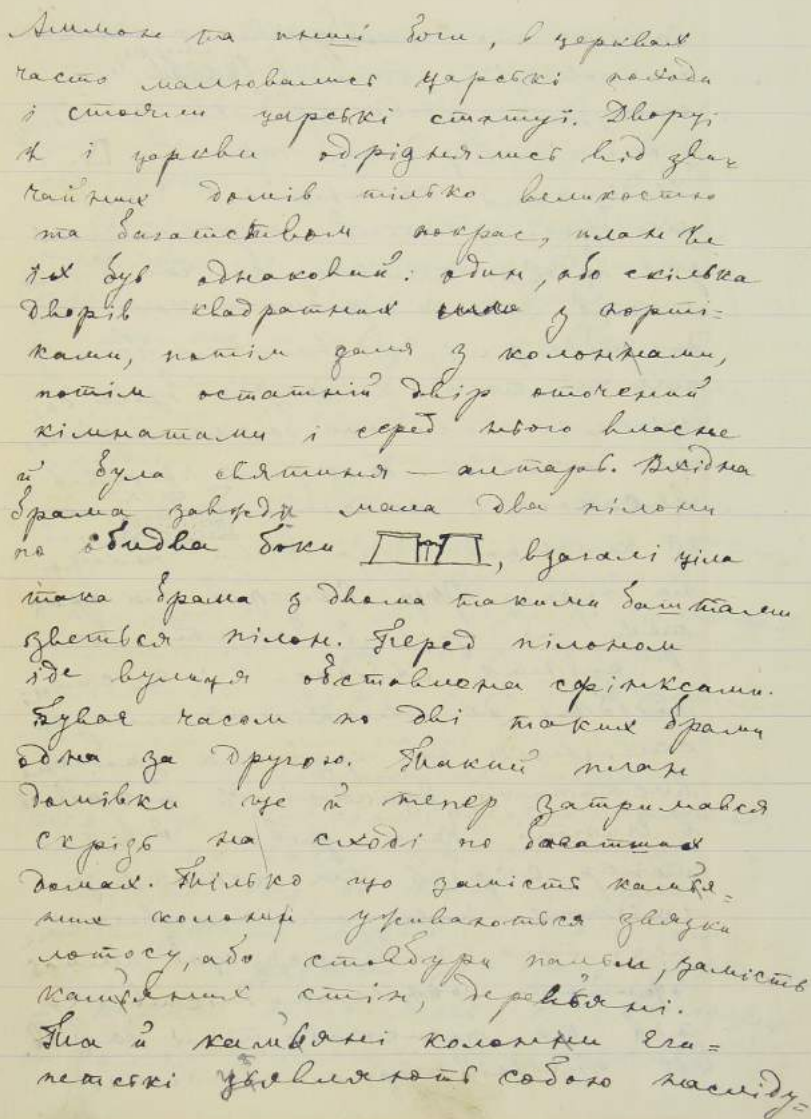 Аммон та инші боги, в церквах
часто малювались царські походи
і стояли царські статуї. Дворці
й і церкви одріднялись від зви-
чайних домів тілько великостью
та багатством покрас, план же
їх був однаковий: один, або скілька
дворів квадратних з порті-
ками, потім заля з колонами,
потім остатній двір оточений
кімнатами і серед нього власне
й була святиня — алтарь. Вхідна
брама завжди мала два пілони
по обидва боки , взагалі ціла
така брама з двома такими баштами
зветься пілон. Перед пілоном
іде вулиця обставлена сфінксами.
Буває часом по дві таких брами
одна за другою. Такий план
домівки ще й тепер затримався
скрізь на сході по багатших
домах. Тілько що замість камья-
них колонн уживаються звязки
лотосу, або стовбури пальм, замість
камьяних стін, деревьяні.
Та й камьяні колонни Еги-
петські зьявляють собою насліду-